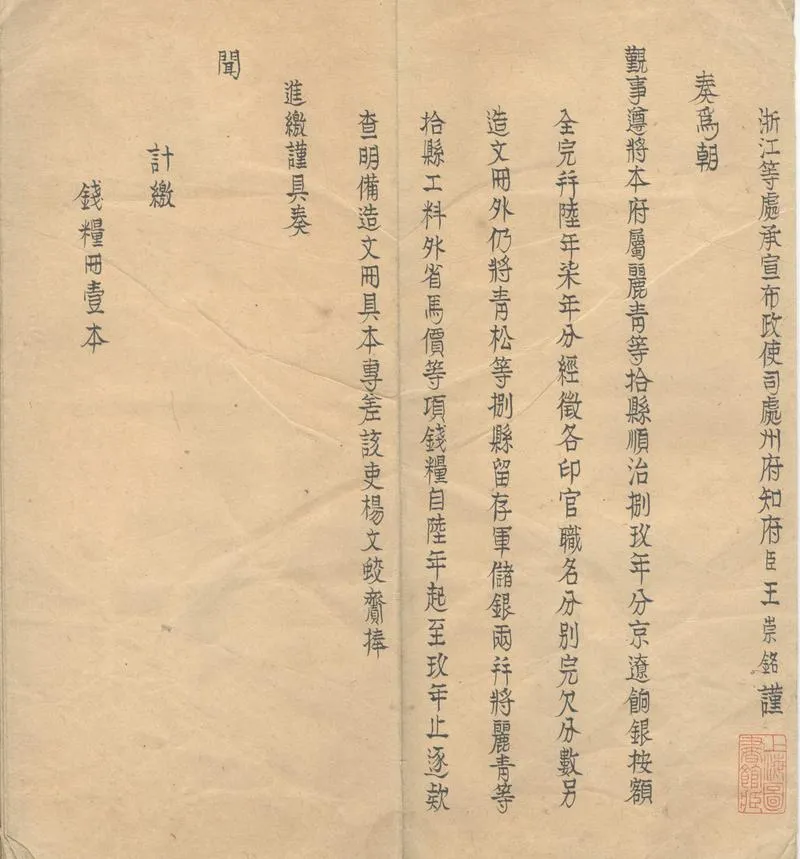 浙江等處承宣布政使司處州府知府臣王崇銘謹
奏爲朝
覲事遵將本府屬麗青等拾縣順治捌玖年分京遼餉銀按額
全完幷陸年柒年分經徵各印官職名分別完欠分數另
造文冊外仍將青松等捌縣留存軍儲銀兩幷將麗青等
拾縣工料外省馬價等項錢糧自陸年起至玖年止逐款
查明備造文冊具本專差該吏楊文蛟齎捧
進繳謹具奏
聞
計繳
錢糧冊壹本
上海圖
書館藏